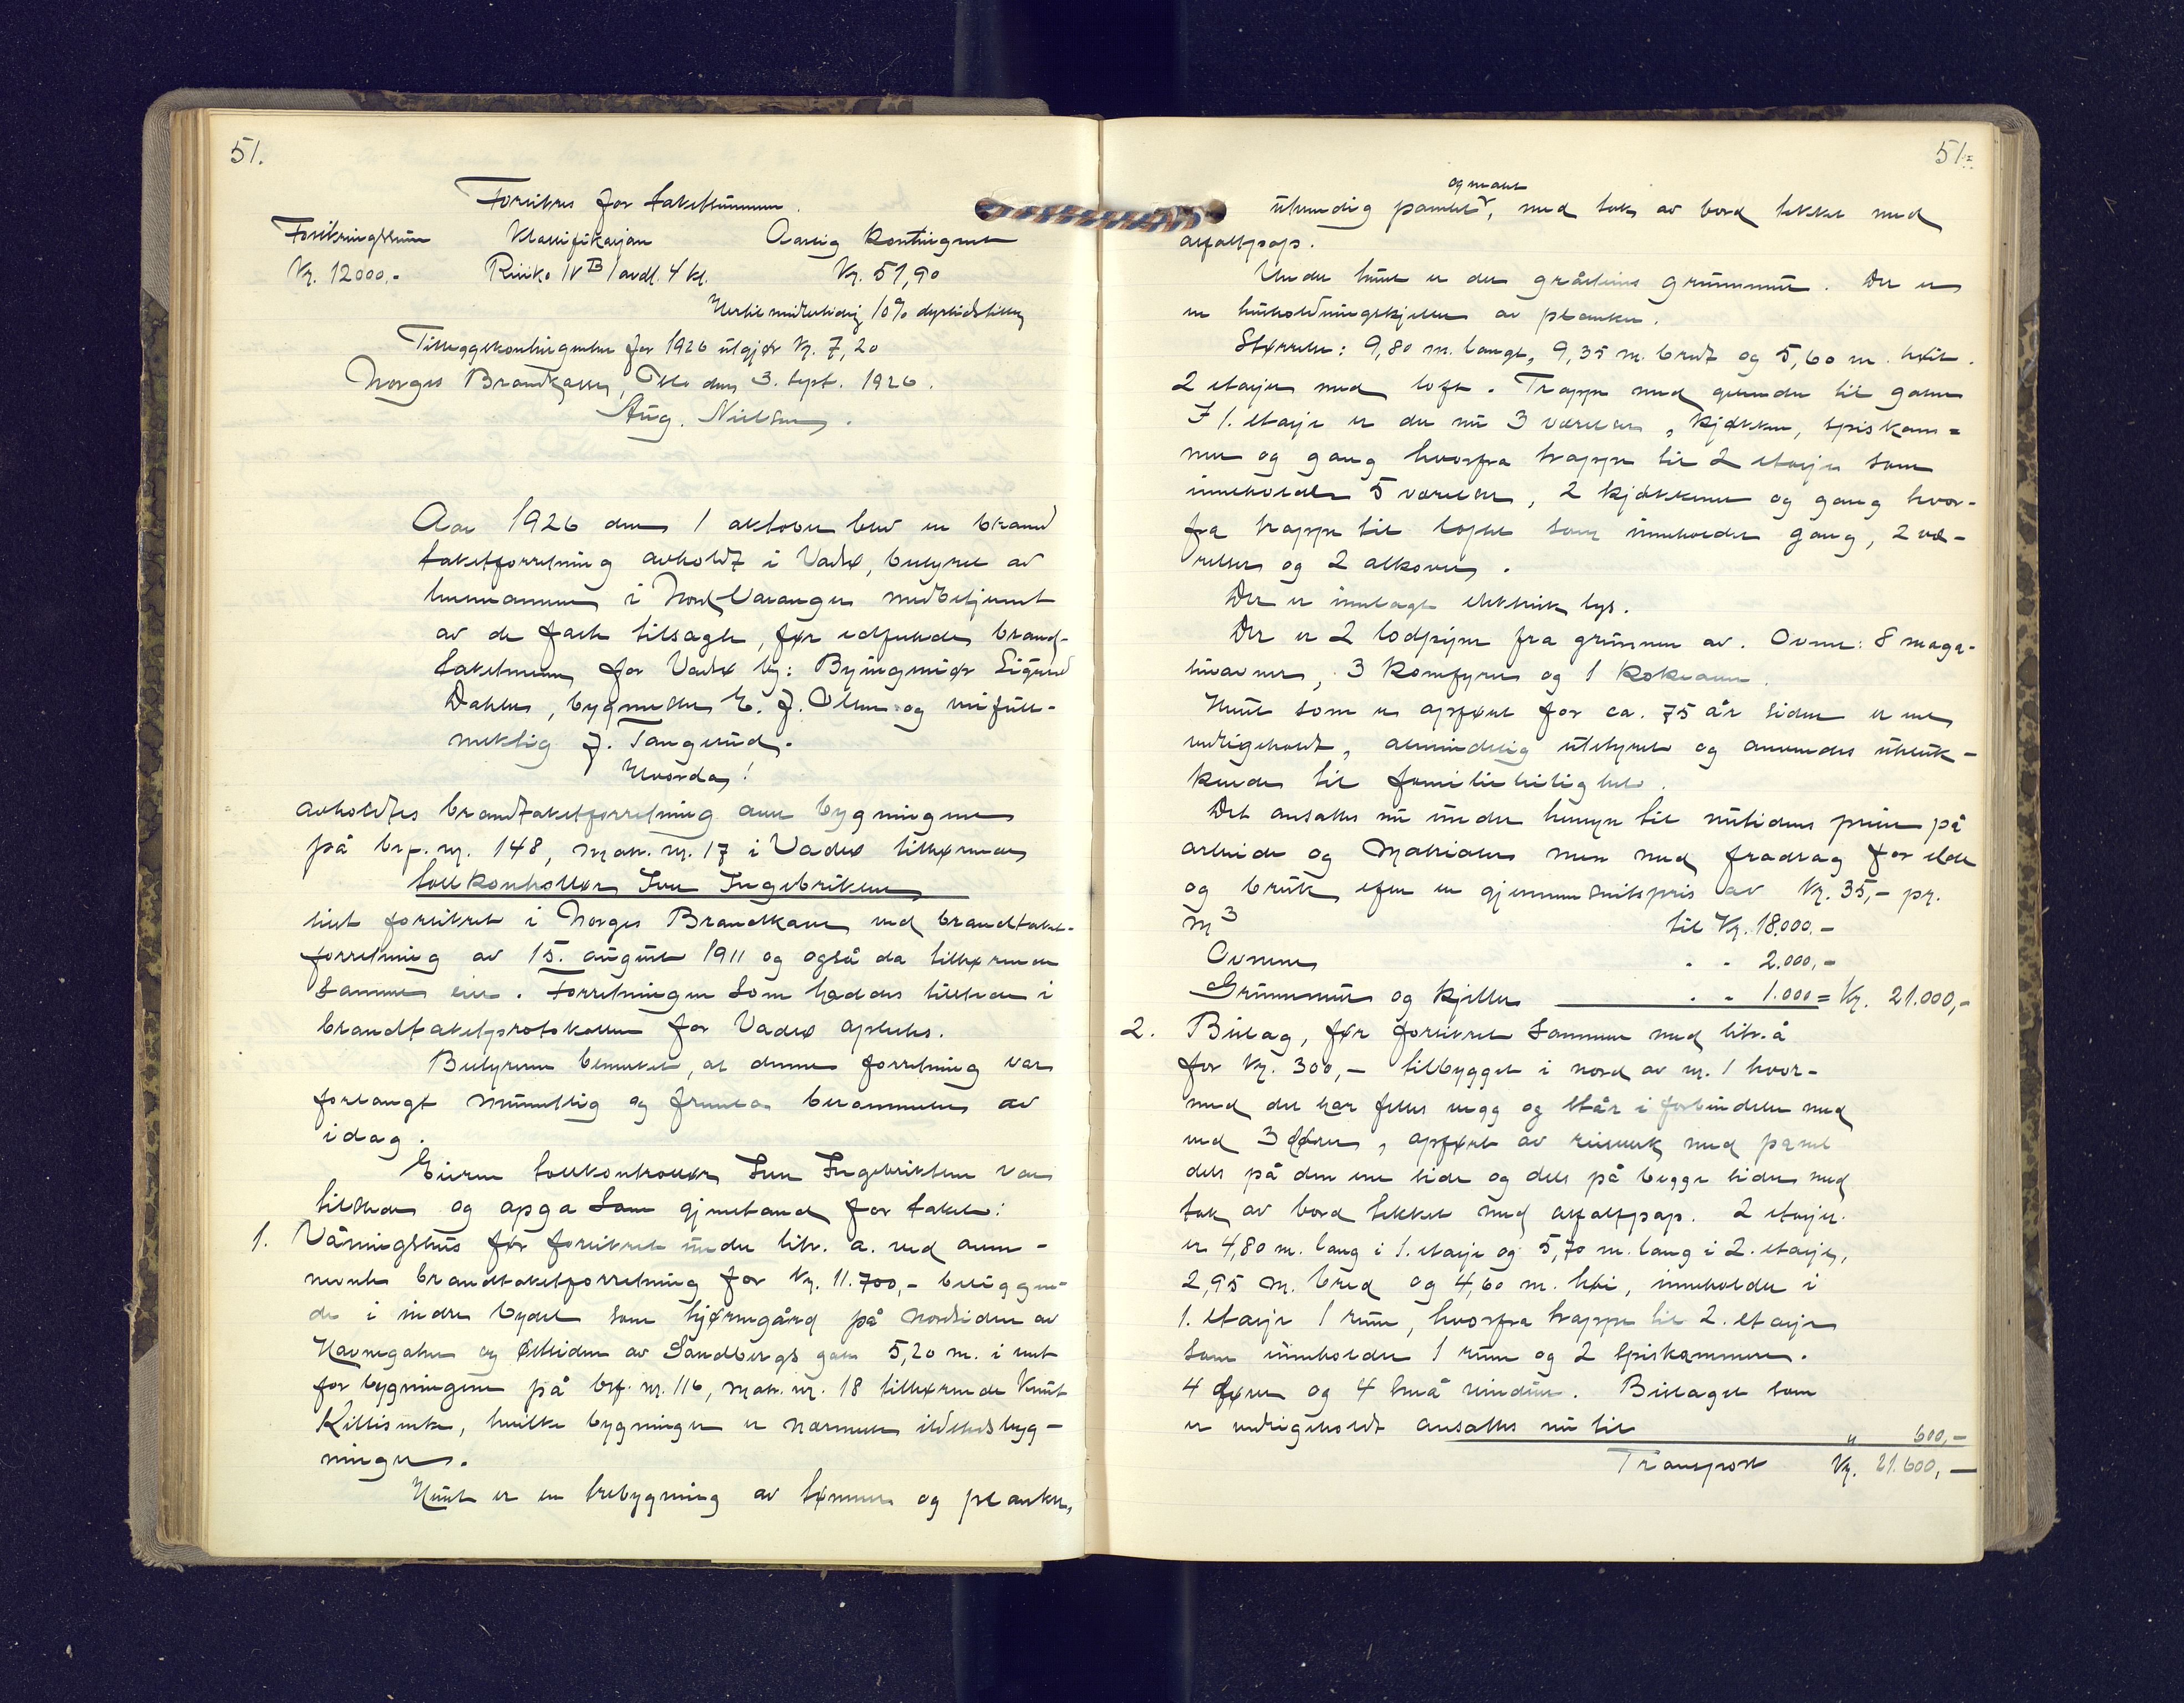 51.
Forsikres for takstsummen.
Forsikringssum Klassifikasjon Aarlig kontingent
Kr. 12000.- Risiko IV B 1 avdl. 4 kl. Kr. 51,90
Hertil midlertidig 10% dyrtidstillæg
Tilleggskontingenten for 1926 utgjør Kr. 7,20
Norges Brandkasse, Oslo den 3. sept. 1926.
Aug. Nielsen.
Aar 1926 den 1 oktober blev en brand
takstforretning avholdt i Vadsø, bestyret av
lensmannen i Nord-Varanger medbetjent
av de fast tilsagte, før edfestede brand-
takstmenn for Vadsø by: Byingeniør Sigurd
Dahler, bygmester E. J. Olsen og innfull-
mektig J. Tangerud.
Hvorda!
avholdtes brandtakstforretning over bygningene
på brf. nr. 148, matr. nr. 17 i Vadsø tilhørende
tollkontrollør Iver Ingebriktsen
sist forsikret i Norges Brandkasse ved brandtakst-
forretning av 15. august 1911 og også da tilhørende
samme eier. Forretningen som haddes tilstede i
brandtakstprotokollen for Vadsø oplestes.
Bestyreren bemerket, at denne forretning var
forlangt muntlig og berammelse av
idag.
Eieren tollkontrollør Iver Ingebriktsen var
tilstede og opga som gjenstand for takst:
1. Våningshus før forsikret under litr. a. ved oven-
nevnte brandtakstforretning for Kr. 11.700,- beliggen-
de i indre bydel som hjørnegård på nordsiden av
Havnegaten og østsiden av Sandbergs gate 5,20 m. i vest
for bygningene på brf. nr. 116, matr. nr. 18 tilhørende Knut
Killismæ, hvilke bygninger er nærmeste ildstedsbyg-
ninger.
Huset er en trebygning av tømmer og planker,
51=
og malet
utvendig panelt, med tak av bord tekket med
asfaltpap.
Under huset er der gråstens grunnmur. Der er
en husholdningskjeller av planker.
Størrelse: 9,80 m. langt, 9,35 m. bredt og 5,60 m. høit.
2 etasjer med loft. Trapp med gelender til gaten
I 1. etasje er der nu 3 værelser, kjøkken, spiskam=
mer og gang hvorfra trapp til 2 etasje som
inneholder 5 værelser, 2 kjøkkener og gang hvor-
fra trapp til loftet som inneholder gang, 2 væ-
relser og 2 alkover.
Der er innlagt elektrisk lys.
Der er 2 lodpiper fra grunnen av. Ovner: 8 maga-
sinovner, 3 komfyrer og 1 kokeovn.
Huset som er opført for ca. 75 år siden er vel
vedlikeholdt, almindelig utstyret og anvendes uteluk-
kende til familieleilighet.
Det ansattes nu under hensyn til nutidens priser på
arbeide og materialer men med fradrag for elde
og bruk efter en gjennemsnitspris av Kr. 35,- pr.
m3 til Kr. 18.000.-
Ovnene - - 2.000,-
Grunnmur og kjeller - - 1.000 = Kr. 21.000,-
2. Bislag, før forsikret sammen med litr. a
for Kr. 300,- tilbygget i nord av nr. 1 hvor-
med det har felles vegg og står i forbindelse med
ved 3 dører, opført av reisverk med panel
dels på den ene side og dels på begge sider med
tak av bord tekket med asfaltpap. 2 etasjer.
er 4,80 m. lang i 1. etasje og 5,70 m. lang i 2. etasje,
2,95 m. bred og 4,60 m. høi, inneholder i
1. etasje 1 rum, hvorfra trapp til 2. etasje
som inneholder 1 rum og 2 spiskammere.
4 dører og 4 små vinduer. Bislaget som
er vedlikeholdt ansattes nu til " 600,-
Transport Kr. 21.600,-